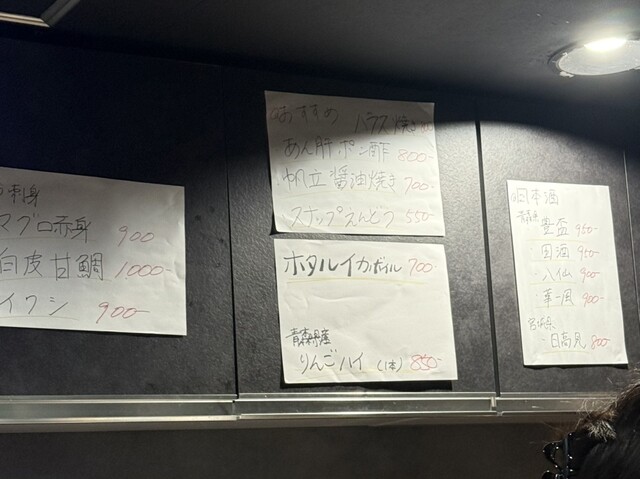 刺身
マグロ赤身 900
白皮甘鯛 1,000-
イワシ 900-
おすすめ
ハラス焼き
あん肝ポン酢 800-
帆立醤油焼き 700-
スナップえんどう 550-
ホタルイカボイル 700-
青森県産
りんごハイ (1本) 850-
日本酒
青森県
豊盃 950-
国酒 950-
八仙 900-
華一風 900-
宮城県
・日高見 800-